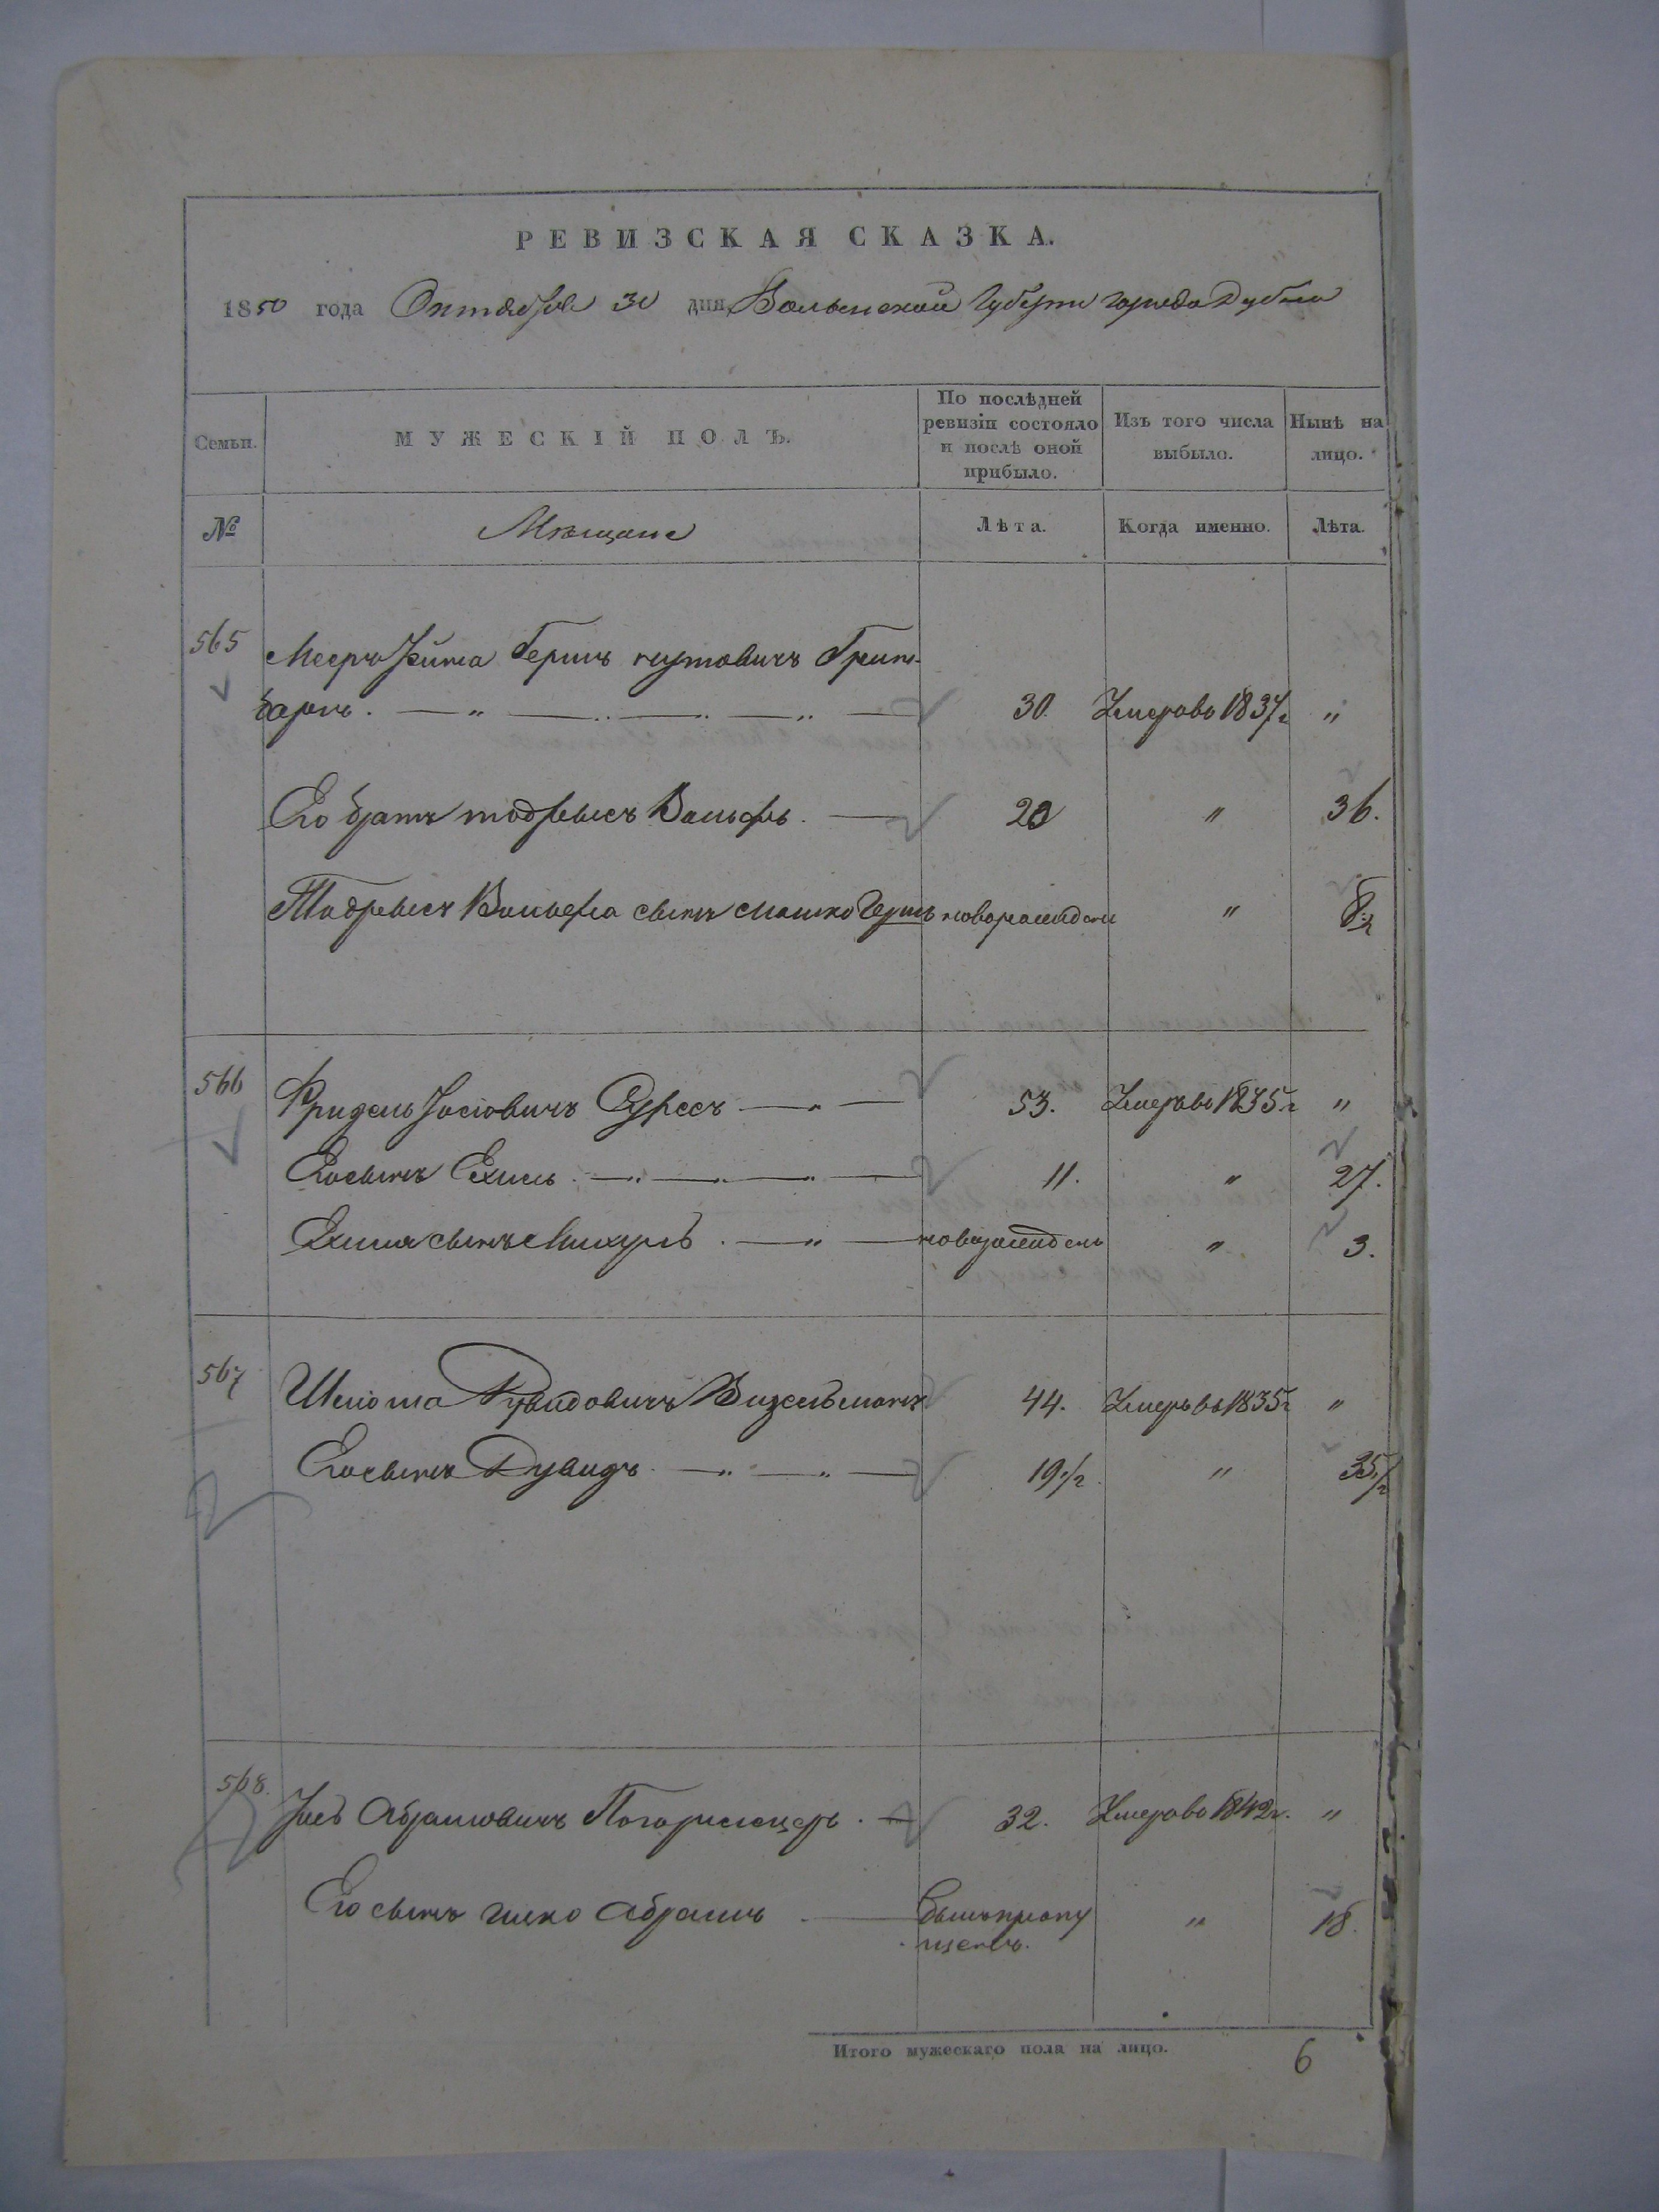 РЕВИЗСКАЯ СКАЗКА.
1850 года Октября 30 дня Волынской Губерни города Дубно
Семьи. МУЖЕСКІЙ ПОЛЪ. По послѣдней ревизіи состояло и послѣ оной прибыло. Изъ того числа выбыло. Нынѣ на лицо.
№ Мѣщане Лѣта. Когда именно. Лѣта.
565 Мееръ Гершъ Грин-
баргъ. 30. Умеръ въ 1837 г "
Его братъ Тодресъ Вольфъ. 20 " 36.
Тодреса Вольфа сынъ Мошко Гершъ новорожденъ " 8 1/2
566 Фридель Іосіовичъ 53. Умеръ въ 1835 г "
Его сынъ Ехиль. 11. " 27.
Ехиля сынъ новорожденъ " 3.
567 Шлиома Дувидовичъ Визельманъ 44. Умеръ въ 1835 г "
Его сынъ Дувидъ 19 1/2. " 35 1/2
568. Абрамовичъ Погорелецеръ. 32. Умеръ въ 1842 г. "
Его сынъ Ицко Абрамъ былъ пропу
щенъ. " 18.
Итого мужескаго пола на лицо. 6